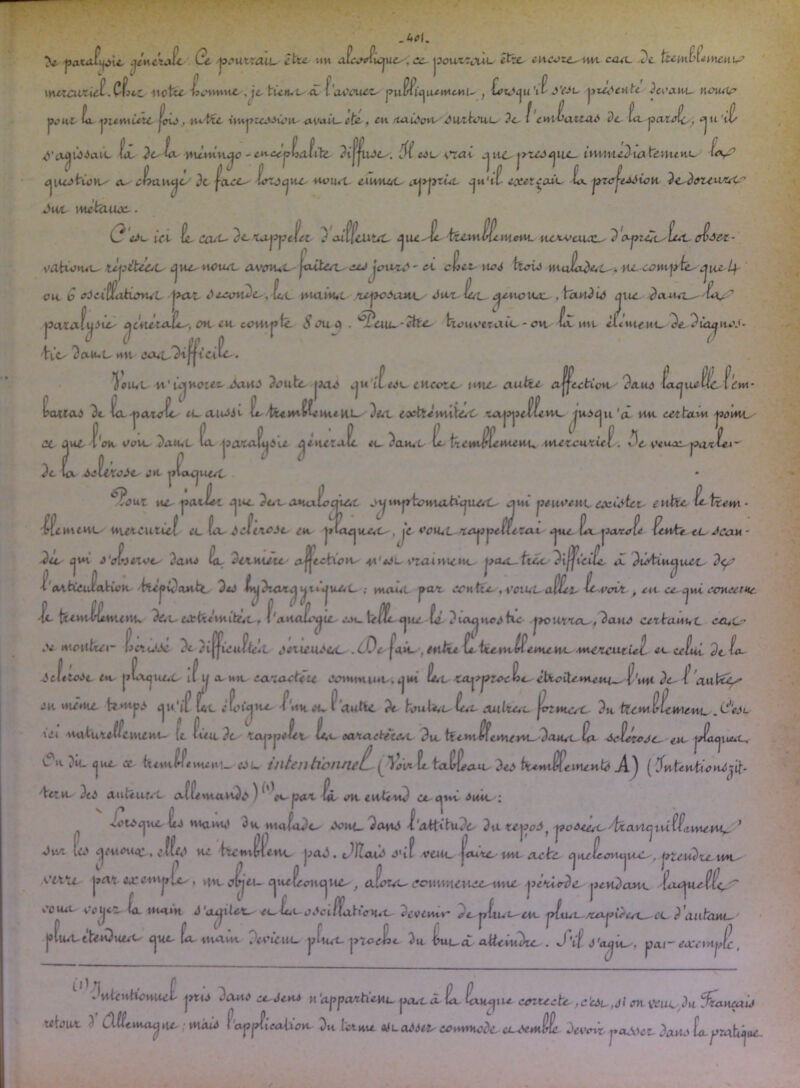 _401_
de paralysie générale. Ce pourrait être un alcoolique, ce pourrait être encore un cas de tremblement
mercuriel. Chez notre homme, je tiens à l'avouer publiquement, lorsqu'il s'est présenté devant nous
pour la première fois, notre impression avait été, en raison surtout de l'embarras de la parole, qu'il
s'agissait là de la méningo-encéphalite diffuse. Il est vrai que presque immédiatement la
question a changé de face lorsque nous eûmes appris qu'il exerçait la profession de doreur
sur métaux.
C'est ici le cas de rappeler d'ailleurs que le tremblement nerveux d'après les obser-
vations répétées que nous avons faites ces jours-ci chez nos trois malades, ne compte que 4
ou 6 oscillations par seconde, les mains reposant sur les genoux, tandis que dans la
paralysie générale, on en compte 8 ou 9. Peut-être trouverait-on là un élément de diagnos-
tic dans un cas difficile.
Vous n'ignorez sans doute pas qu'il est encore une autre affection dans laquelle l'em-
barras de la parole et aussi le tremblement des extrémités rappellent jusqu'à un certain point
ce que l'on voit dans la paralysie générale et dans le tremblement mercuriel. Je veux parler
de la sclérose en plaques.
Pour ne parler que des analogies symptomatiques qui peuvent exister entre le trem-
blement mercuriel et la sclérose en plaques, je vous rappellerai que la parole lente et scan-
dée qui s'observe dans la dernière affection n'est vraiment pas très difficile à distinguer de
l'articulation trépidante des hydrargyriques ; mais par contre, vous allez le voir, en ce qui concerne
le tremblement des extrémités, l'analogie est telle que le diagnostic pourra, dans certains cas
se montrer hérissé de difficultés sérieuses. De fait, entre le tremblement mercuriel et celui de la
sclérose en plaques il y a un caractère commun, qui les rapproche étroitement l'un de l'autre
en même temps qu'il les éloigne l'un et l'autre de toutes les autres formes du tremblement. C'est
ici naturellement le lieu de rappeler les caractères du tremblement dans la sclérose en plaques.
On dit que ce tremblement est intentionnel (Voir le tableau des tremblements A) (Intentionszit-
tern des auteurs allemands) (1) et par là on entend ce qui suit :
Lorsque les mains du malade sont dans l'attitude du repos, posées tranquillement
sur les genoux, elles ne tremblent pas. Mais s'il veut faire un acte quelconque, prendre un
verre par exemple, un objet quelconque, alors commence une période pendant laquelle
vous voyez la main s'agiter et les oscillations devenir de plus en plus rapides et d'autant
plus étendues que la main devient plus proche du but à atteindre. S'il s'agit, par exemple,
(1) Intentionnel pris dans ce sens n'appartient pas à la langue correcte, c'est, si on veut, du Français
retour d'Allemagne ; mais l'application du terme est assez commode et semble devoir passer dans la pratique.